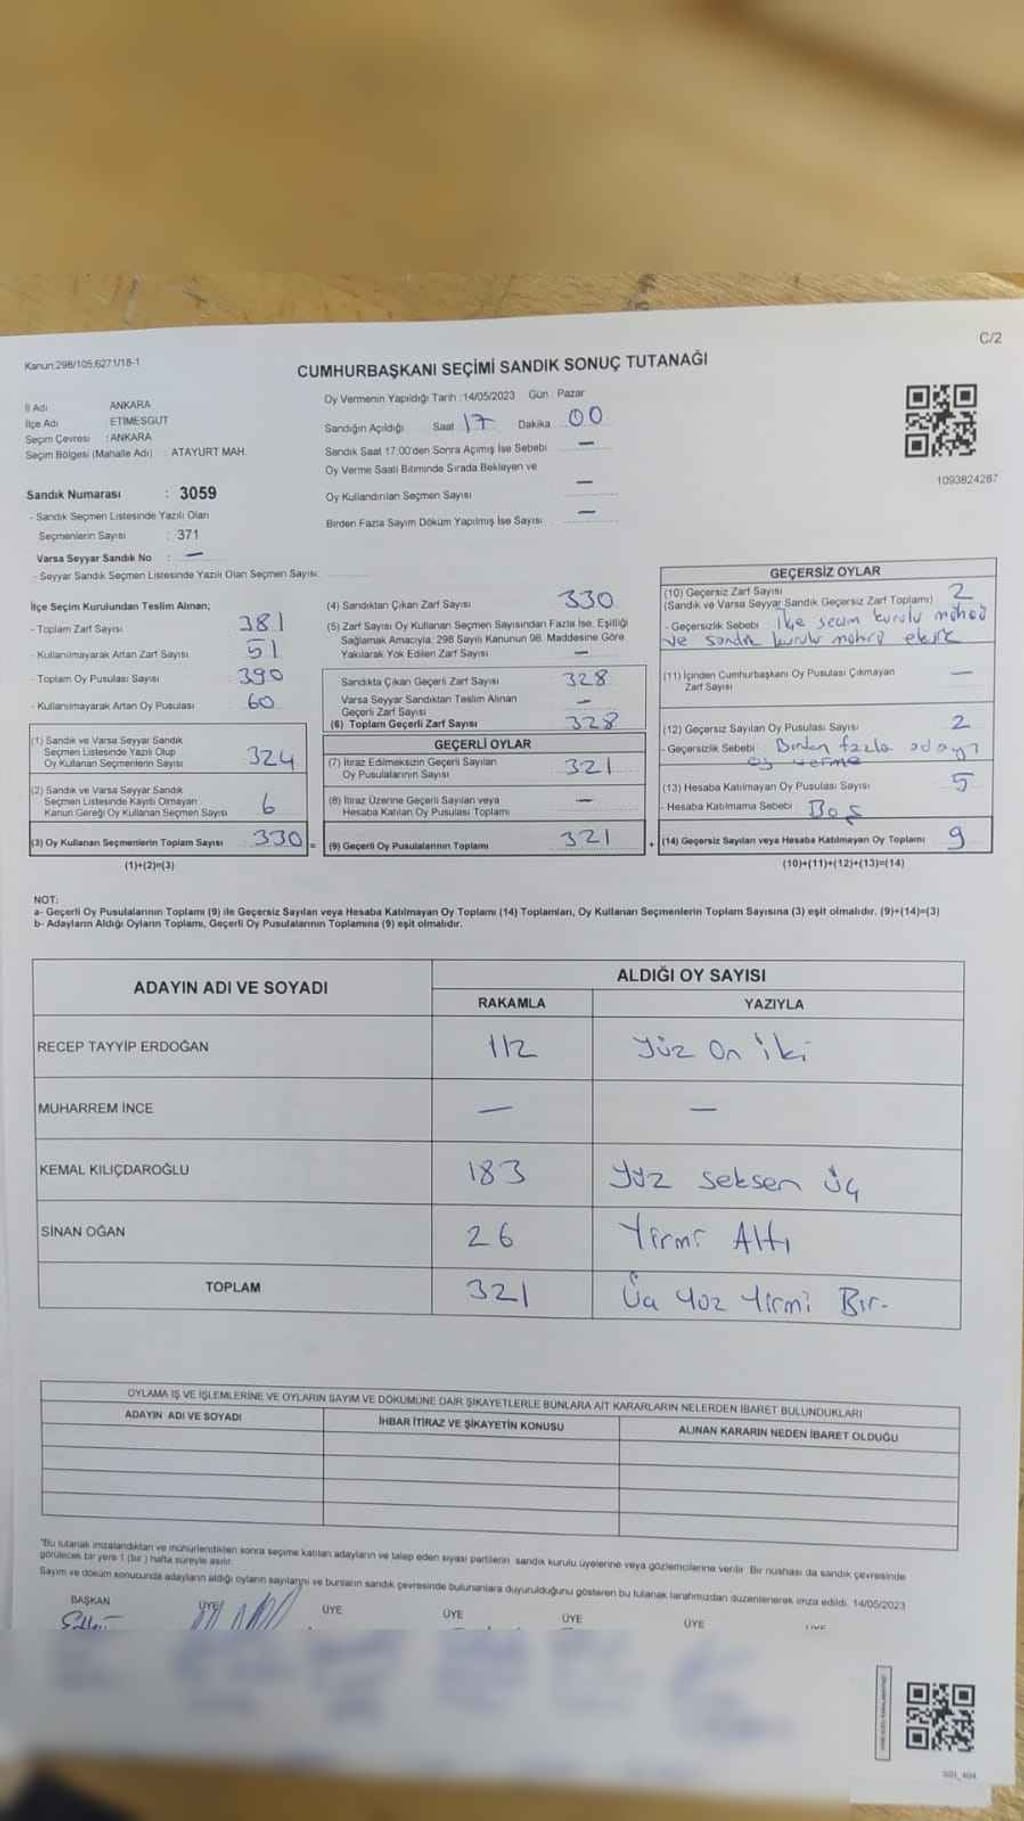 C/2
Kanun:298/105,6271/18-1
CUMHURBAŞKANI SEÇİMİ SANDIK SONUÇ TUTANAĞI
İl Adı ANKARA
İlçe Adı ETİMESGUT
Seçim Çevresi : ANKARA
Seçim Bölgesi (Mahalle Adı) : ATAYURT MAH.
Oy Vermenin Yapıldığı Tarih :14/05/2023 Gün : Pazar
Sandığın Açıldığı Saat 17 Dakika 00
Sandık Saat 17.00'den Sonra Açımış İse Sebebi —
Oy Verme Saati Bitiminde Sırada Bekleyen ve
Oy Kullandırılan Seçmen Sayısı —
Birden Fazla Sayım Döküm Yapılmış İse Sayısı —
1093824267
Sandık Numarası : 3059
- Sandık Seçmen Listesinde Yazılı Olan
Seçmenlerin Sayısı : 371
Varsa Seyyar Sandık No : —
- Seyyar Sandık Seçmen Listesinde Yazılı Olan Seçmen Sayısı:
İlçe Seçim Kurulundan Teslim Alınan;
- Toplam Zarf Sayısı 381
- Kullanılmayarak Artan Zarf Sayısı 51
- Toplam Oy Pusulası Sayısı 390
- Kullanılmayarak Artan Oy Pusulası 60
(1) Sandık ve Varsa Seyyar Sandık
Seçmen Listesinde Yazılı Olup
Oy Kullanan Seçmenlerin Sayısı 324
(2) Sandık ve Varsa Seyyar Sandık
Seçmen Listesinde Kayıtlı Olmayan
Kanun Gereği Oy Kullanan Seçmen Sayısı 6
(3) Oy Kullanan Seçmenlerin Toplam Sayısı 330 =
(1)+(2)=(3)
(4) Sandıktan Çıkan Zarf Sayısı 330
(5) Zarf Sayısı Oy Kullanan Seçmen Sayısından Fazla İse, Eşitliği
Sağlamak Amacıyla; 298 Sayılı Kanunun 98. Maddesine Göre
Yakılarak Yok Edilen Zarf Sayısı —
Sandıkta Çıkan Geçerli Zarf Sayısı 328
Varsa Seyyar Sandıktan Teslim Alınan
Geçerli Zarf Sayısı —
(6) Toplam Geçerli Zarf Sayısı 328
GEÇERLİ OYLAR
(7) İtiraz Edilmeksizin Geçerli Sayılan
Oy Pusulalarının Sayısı 321
(8) İtiraz Üzerine Geçerli Sayılan veya
Hesaba Katılan Oy Pusulası Toplamı —
(9) Geçerli Oy Pusulalarının Toplamı 321 +
GEÇERSİZ OYLAR
(10) Geçersiz Zarf Sayısı
(Sandık ve Varsa Seyyar Sandık Geçersiz Zarf Toplamı) 2
- Geçersizlik Sebebi ilçe seçim kurulu mührü
ve sandık kurulu mührü eksik
(11) İçinden Cumhurbaşkanı Oy Pusulası Çıkmayan
Zarf Sayısı —
(12) Geçersiz Sayılan Oy Pusulası Sayısı 2
- Geçersizlik Sebebi Birden fazla adaya
oy verme
(13) Hesaba Katılmayan Oy Pusulası Sayısı 5
- Hesaba Katılmama Sebebi Boş
(14) Geçersiz Sayılan veya Hesaba Katılmayan Oy Toplamı 9
(10)+(11)+(12)+(13)=(14)
NOT:
a- Geçerli Oy Pusulalarının Toplamı (9) ile Geçersiz Sayılan veya Hesaba Katılmayan Oy Toplamı (14) Toplamları, Oy Kullanan Seçmenlerin Toplam Sayısına (3) eşit olmalıdır. (9)+(14)=(3)
b- Adayların Aldığı Oyların Toplamı, Geçerli Oy Pusulalarının Toplamına (9) eşit olmalıdır.
ADAYIN ADI VE SOYADI ALDIĞI OY SAYISI
RAKAMLA YAZIYLA
RECEP TAYYİP ERDOĞAN 112 Yüz On iki
MUHARREM İNCE — —
KEMAL KILIÇDAROĞLU 183 Yüz seksen üç
SİNAN OĞAN 26 Yirmi Altı
TOPLAM 321 Üç Yüz Yirmi Bir.
OYLAMA İŞ VE İŞLEMLERİNE VE OYLARIN SAYIM VE DÖKÜMÜNE DAİR ŞİKAYETLERLE BUNLARA AİT KARARLARIN NELERDEN İBARET BULUNDUKLARI
ADAYIN ADI VE SOYADI İHBAR İTİRAZ VE ŞİKAYETİN KONUSU ALINAN KARARIN NEDEN İBARET OLDUĞU
"Bu tutanak imzalandıktan ve mühürlendikten sonra seçime katılan adayların ve talep eden siyasi partilerin sandık kurulu üyelerine veya gözlemcilerine verilir. Bir nüshası da sandık çevresinde
görülecek bir yere 1 (bir) hafta süreyle asılır.
Sayım ve döküm sonucunda adayların aldığı oyların sayılarını ve bunların sandık çevresinde bulunanlara duyurulduğunu gösteren bu tutanak tarafımızdan düzenlenerek imza edildi. 14/05/2023
BAŞKAN ÜYE ÜYE ÜYE ÜYE ÜYE ÜYE